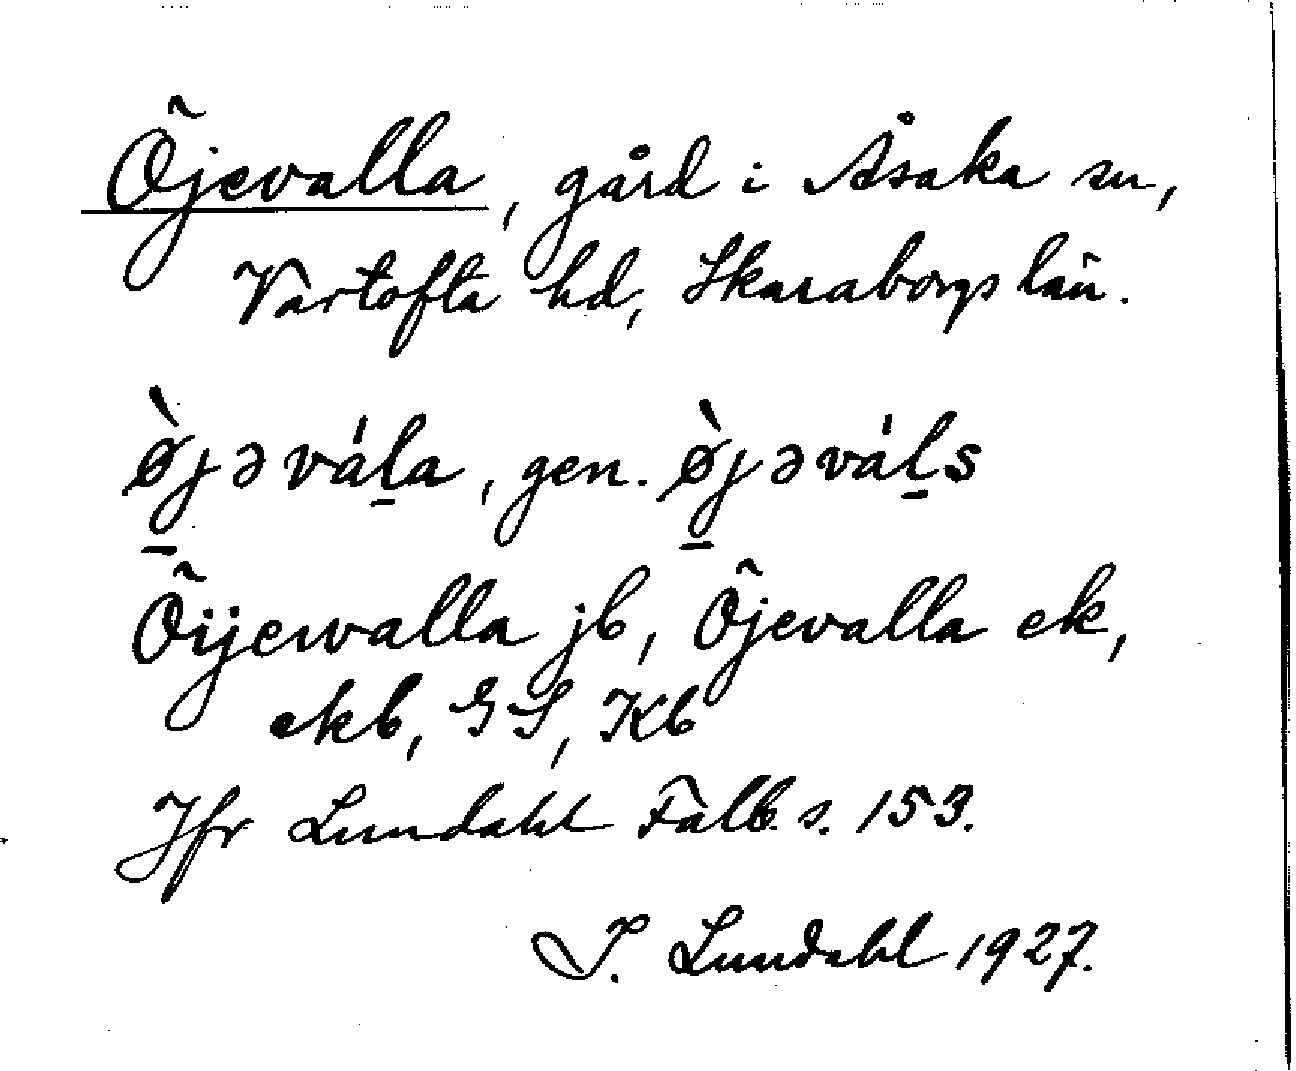 Öjevalla, gård i Åsaka sn,
Vartofta hd, Skaraborgs län.
ø̀jəvál̠a, gen. ø̀jəvál̠s
Öijewalla jb, Öjevalla ek,
ekb, GS, Kb
Jfr Lundahl Falb. s. 153.
I. Lundahl 1927.